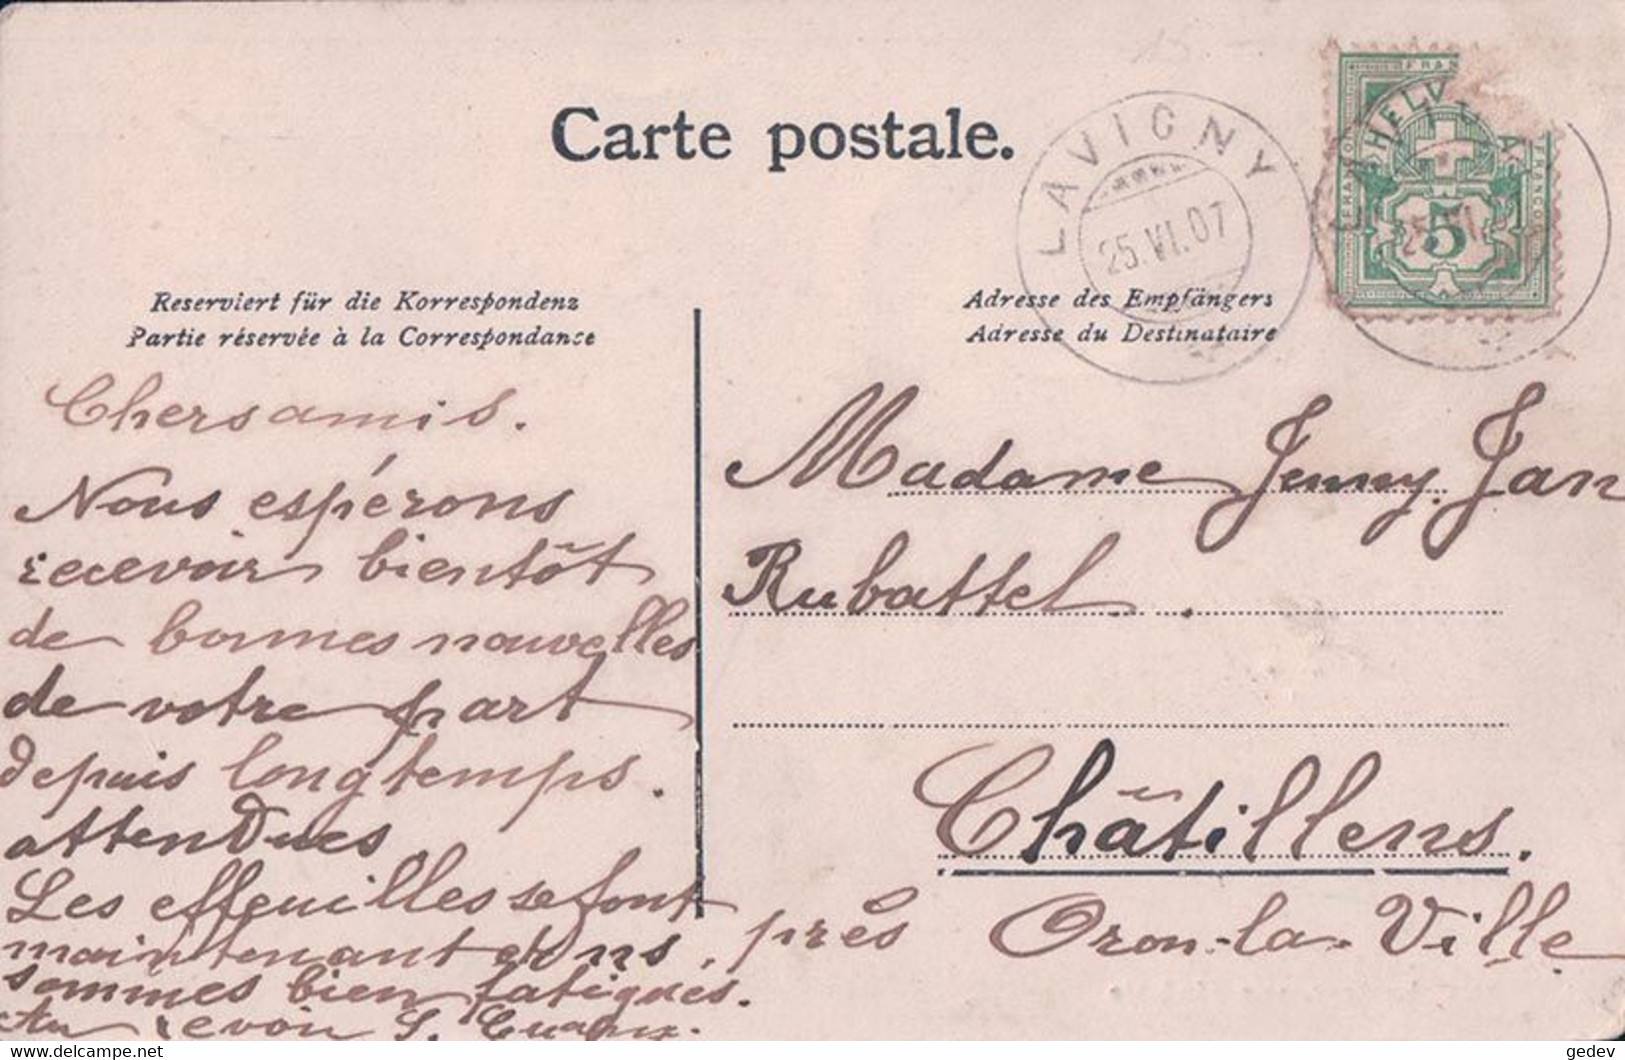 Carte postale.
LAVIGNY
25.VI.07
HELV
FRANCO
5
Reserviert für die Korrespondenz
Partie réservée à la Correspondance
Adresse des Empfängers
Adresse du Destinataire
Chers amis.
Nous espérons
recevoir bientôt
de bonnes nouvelles
de votre part
depuis longtemps.
attendues
Les effeuilles se font
maintenant et ns.
sommes bien fatigués.
Au revoir S.
Madame Jenny Jan
Rubattel
Châtillens.
près Oron-la-Ville
gedev